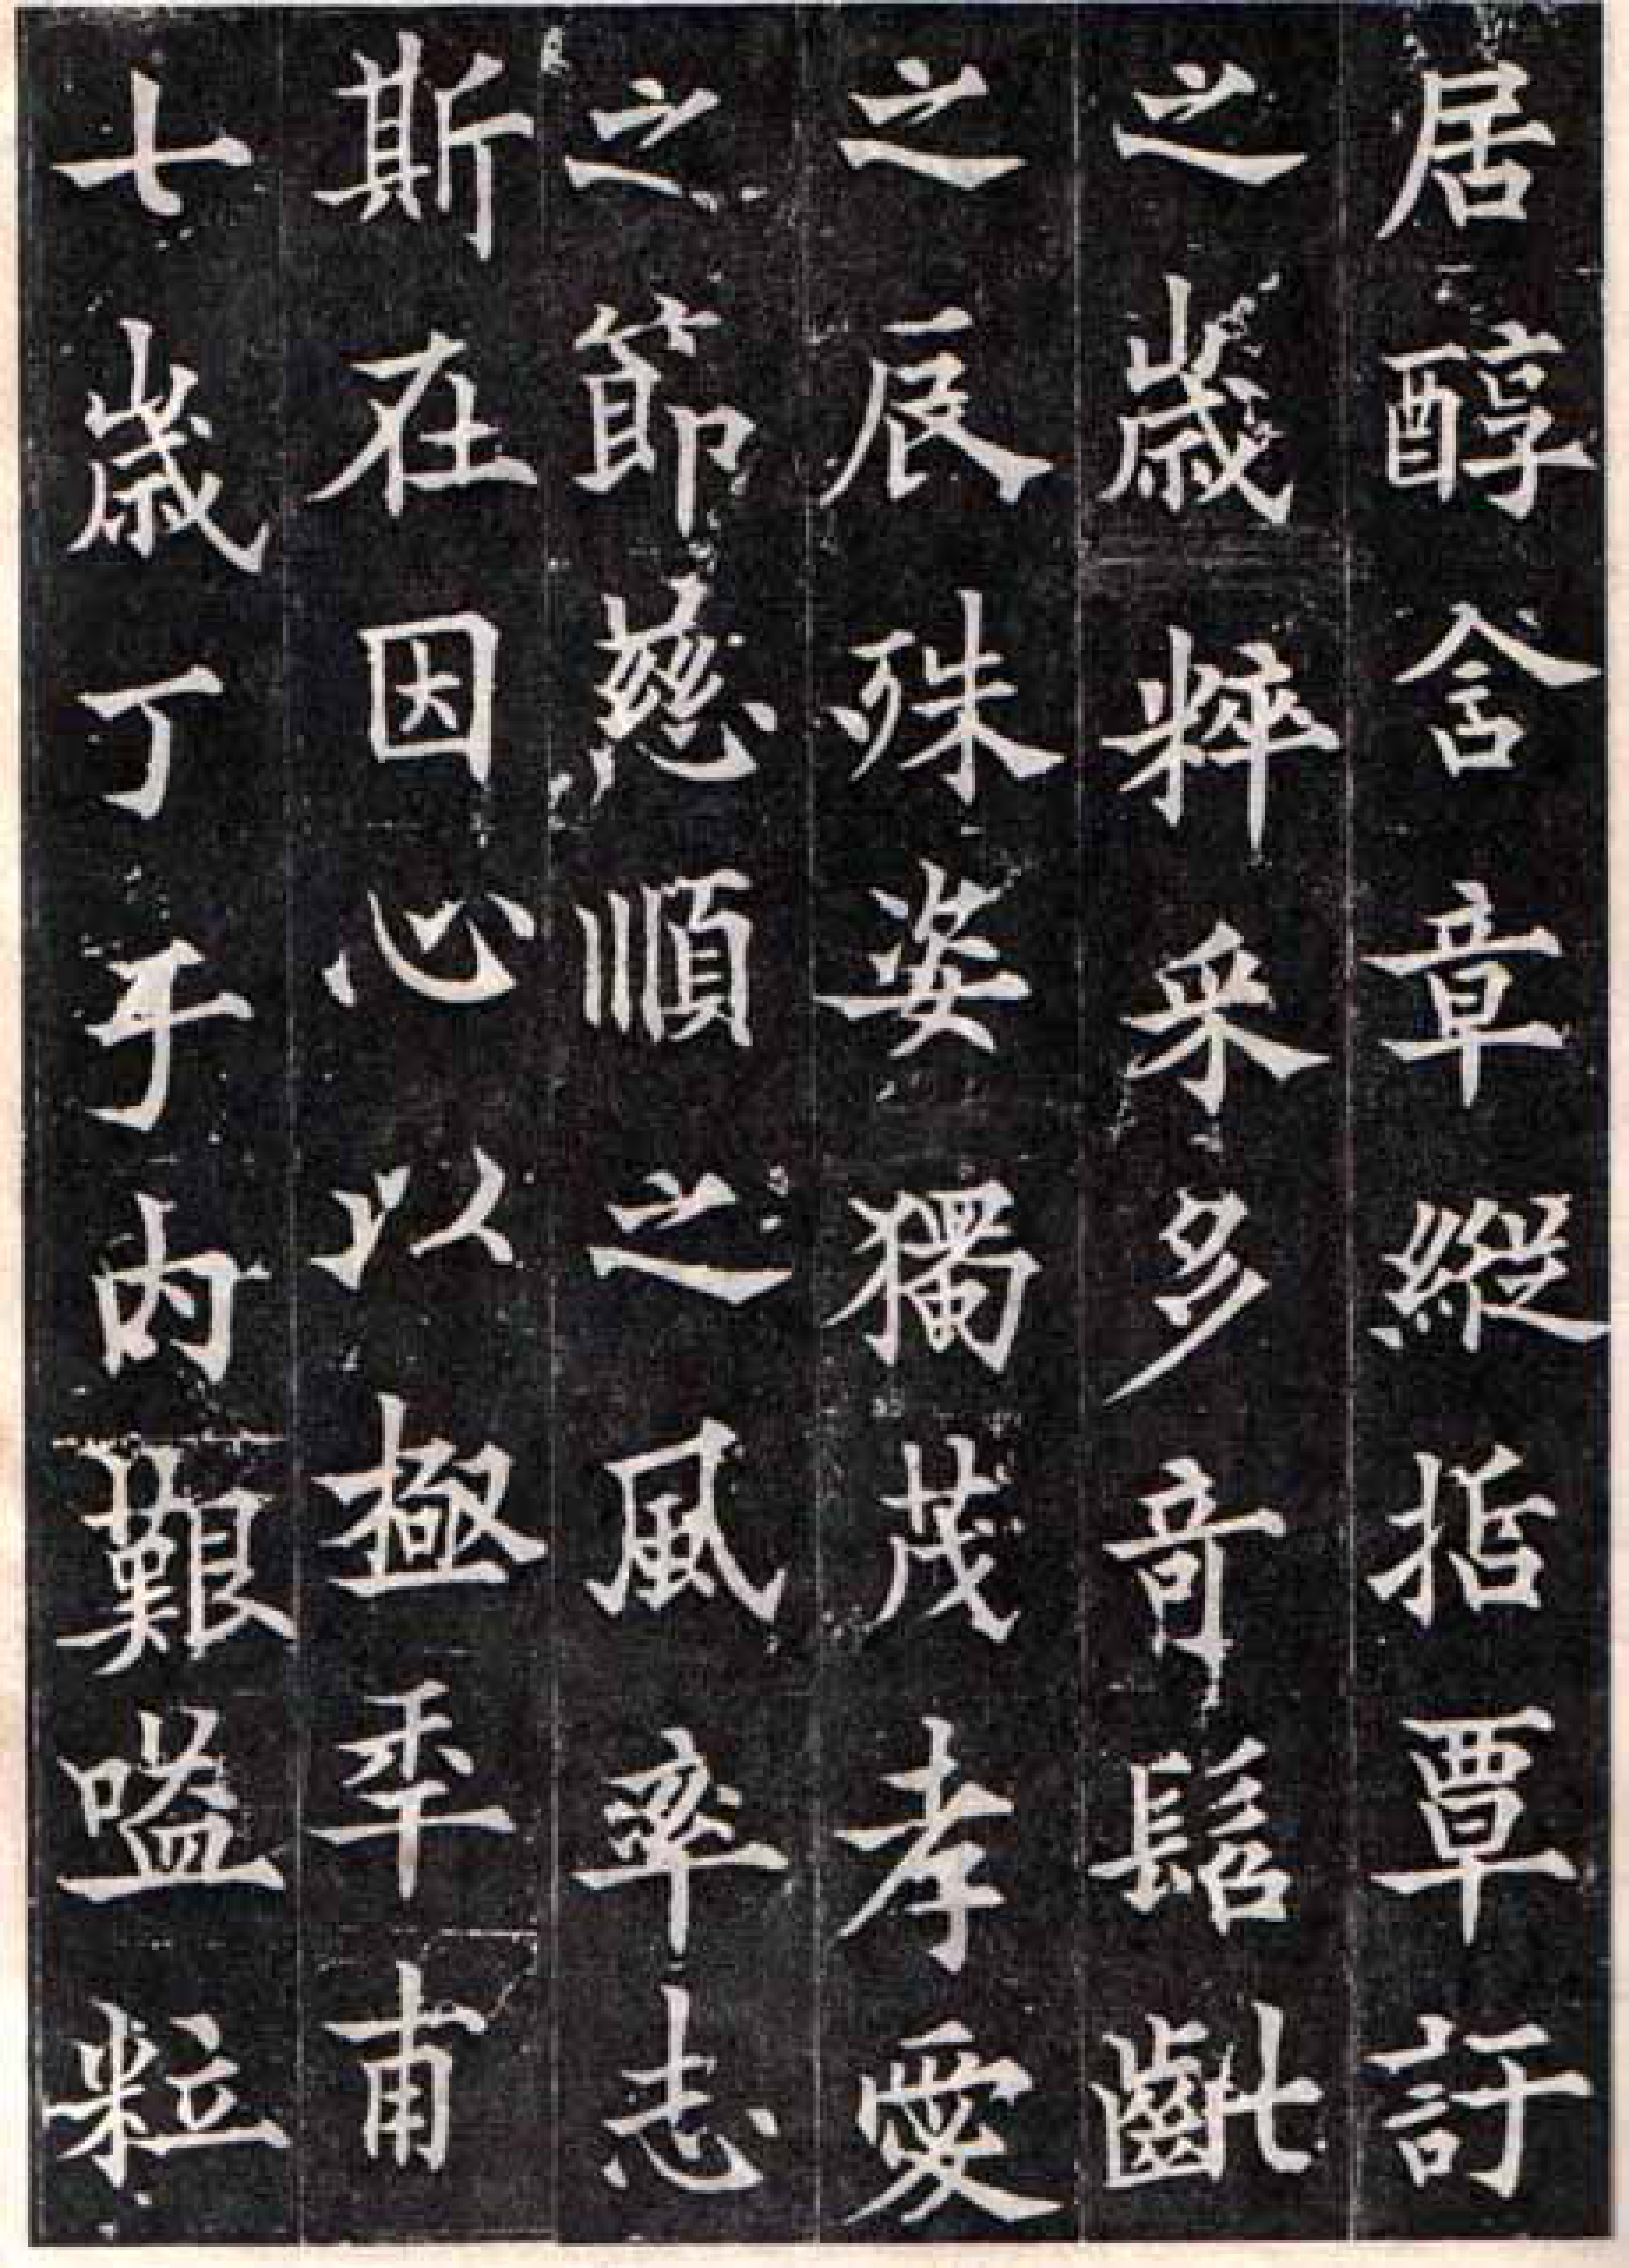 居醇含章縱指覃訏
之歲粹采多奇髫齔
之辰殊姿獨茂孝愛
之節慈順之風率志
斯在因心以極年甫
七歲丁于內艱嗑粒